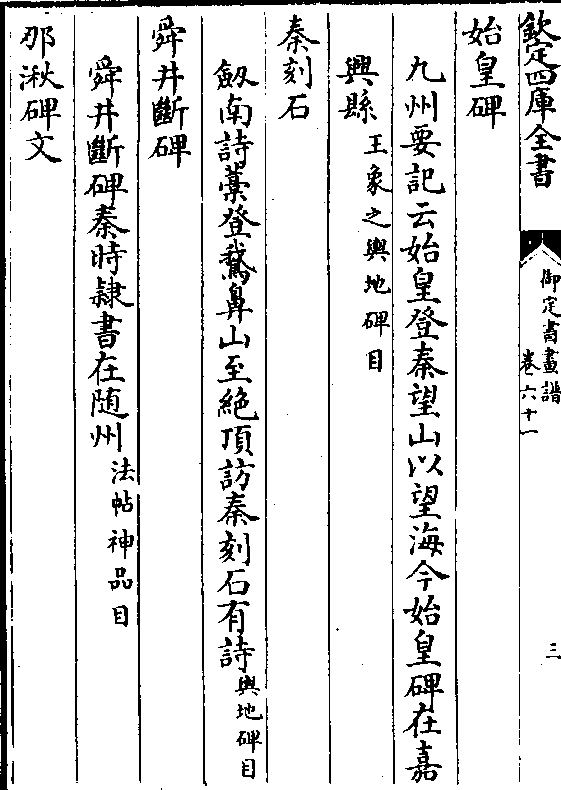 欽定四庫全書
御定書畫譜
卷六十一
三
始皇碑
九州要記云始皇登秦望山以望海今始皇碑在嘉
興縣王象之輿地碑目
秦刻石
劔南詩藁登鵞鼻山至絶頂訪秦刻石有詩輿地碑目
舜井斷碑
舜井斷碑秦時隸書在随州法帖神品目
那湫碑文